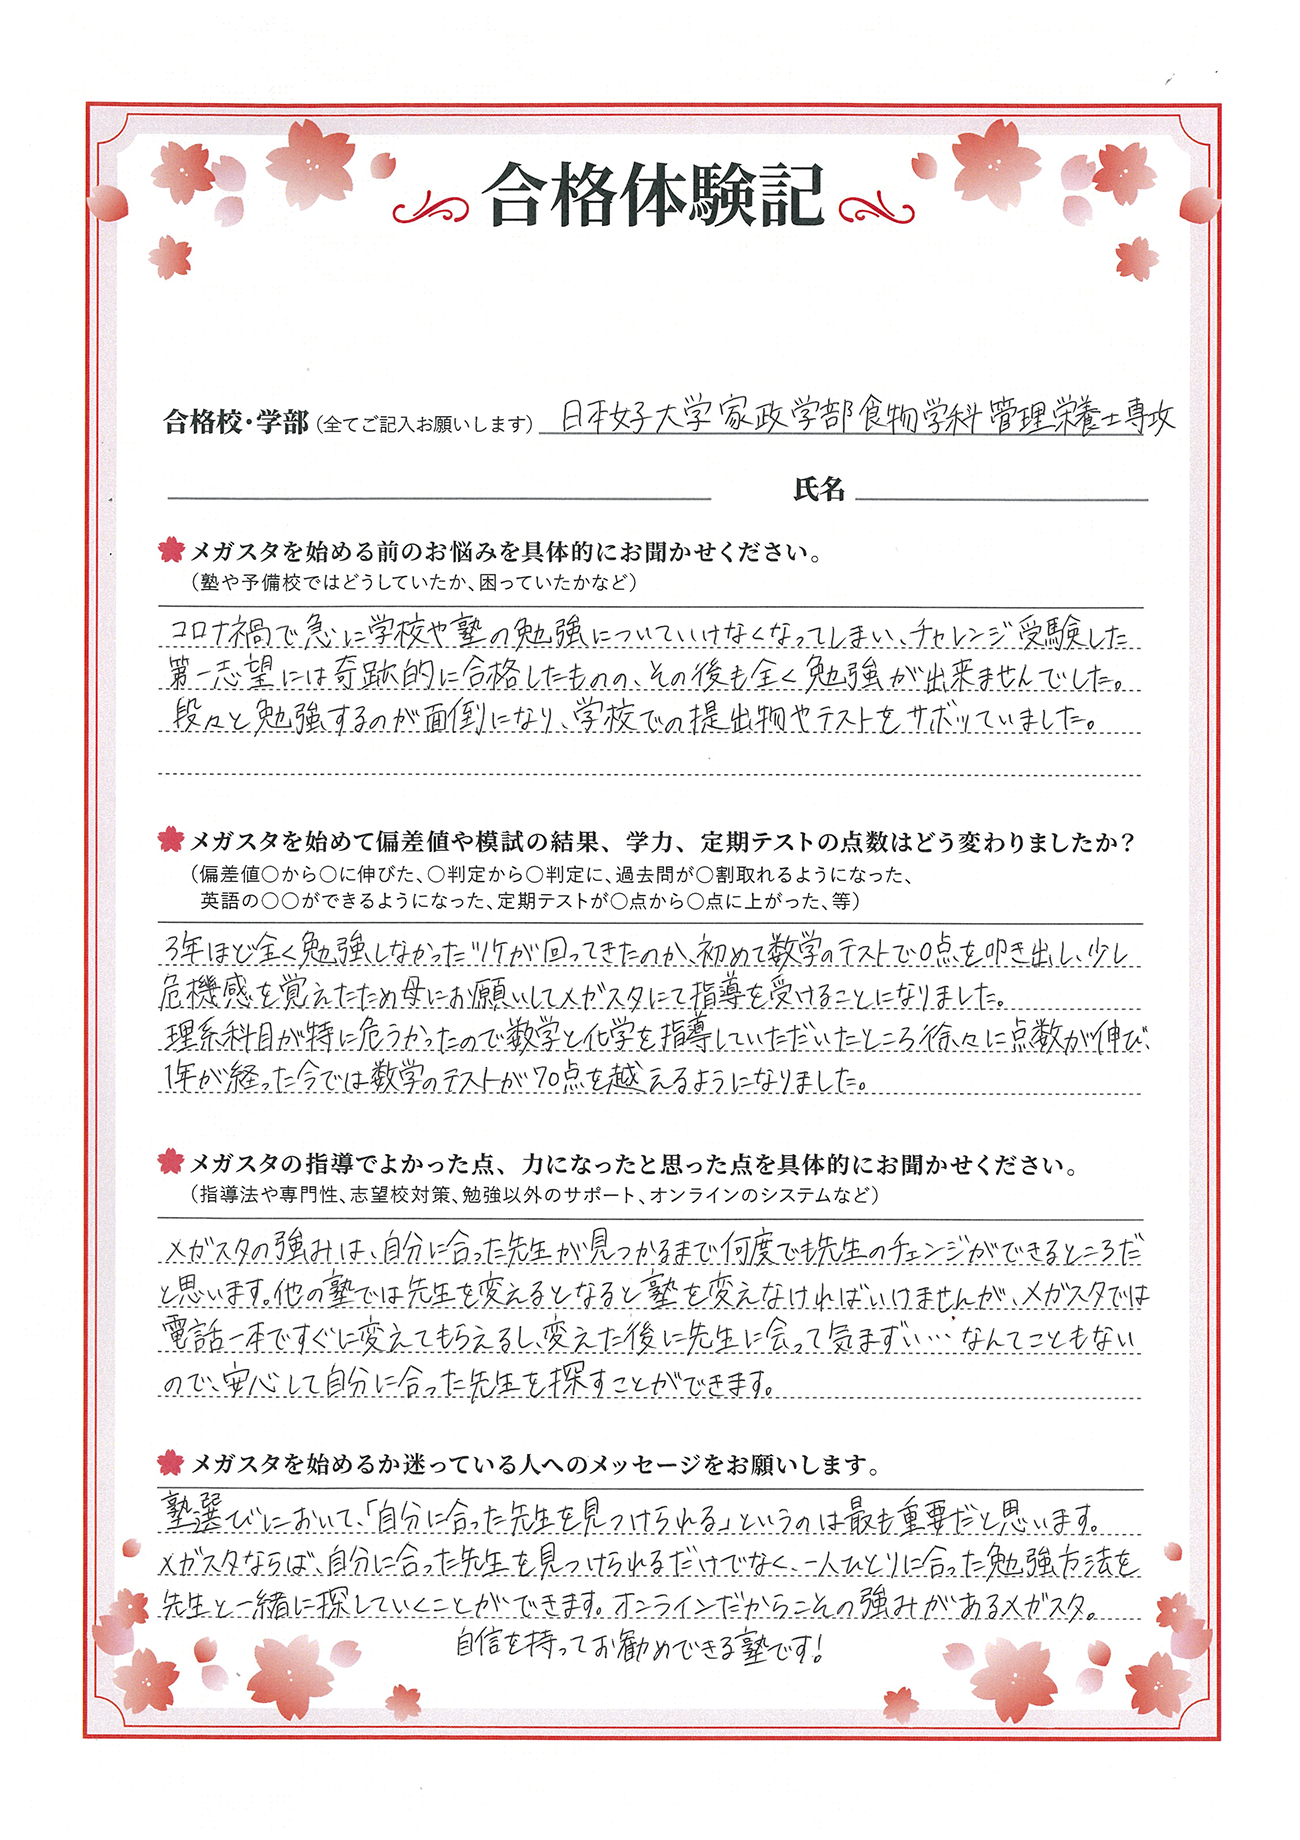 合格体験記
合格校・学部(全てご記入お願いします) 日本女子大学家政学部食物学科管理栄養士専攻
氏名
メガスタを始める前のお悩みを具体的にお聞かせください。
(塾や予備校ではどうしていたか、困っていたかなど)
コロナ禍で急に学校や塾の勉強についていけなくなってしまい、チャレンジ受験した
第一志望には奇跡的に合格したものの、その後も全く勉強が出来ませんでした。
段々と勉強するのが面倒になり、学校での提出物やテストをサボっていました。
メガスタを始めて偏差値や模試の結果、学力、定期テストの点数はどう変わりましたか?
(偏差値〇から〇に伸びた、〇判定から〇判定に、過去問が〇割取れるようになった、
英語の〇〇ができるようになった、定期テストが〇点から〇点に上がった、等)
3年ほど全く勉強しなかったツケが回ってきたのか、初めて数学のテストで0点を叩き出し、少し
危機感を覚えたため母にお願いしてメガスタにて指導を受けることになりました。
理系科目が特に危うかったので数学と化学を指導していただいたところ徐々に点数が伸び、
1年が経った今では数学のテストが70点を越えるようになりました。
メガスタの指導でよかった点、力になったと思った点を具体的にお聞かせください。
(指導法や専門性、志望校対策、勉強以外のサポート、オンラインのシステムなど)
メガスタの強みは、自分に合った先生が見つかるまで何度でも先生のチェンジができるところだ
と思います。他の塾では先生を変えるとなると塾を変えなければいけませんが、メガスタでは
電話一本ですぐに変えてもらえるし、変えた後に先生に会って気まずい…なんてこともない
ので、安心して自分に合った先生を探すことができます。
メガスタを始めるか迷っている人へのメッセージをお願いします。
塾選びにおいて、「自分に合った先生を見つけられる」というのは最も重要だと思います。
メガスタならば、自分に合った先生を見つけられるだけでなく、一人ひとりに合った勉強方法を
先生と一緒に探していくことができます。オンラインだからこその強みがあるメガスタ。
自信を持ってお勧めできる塾です!